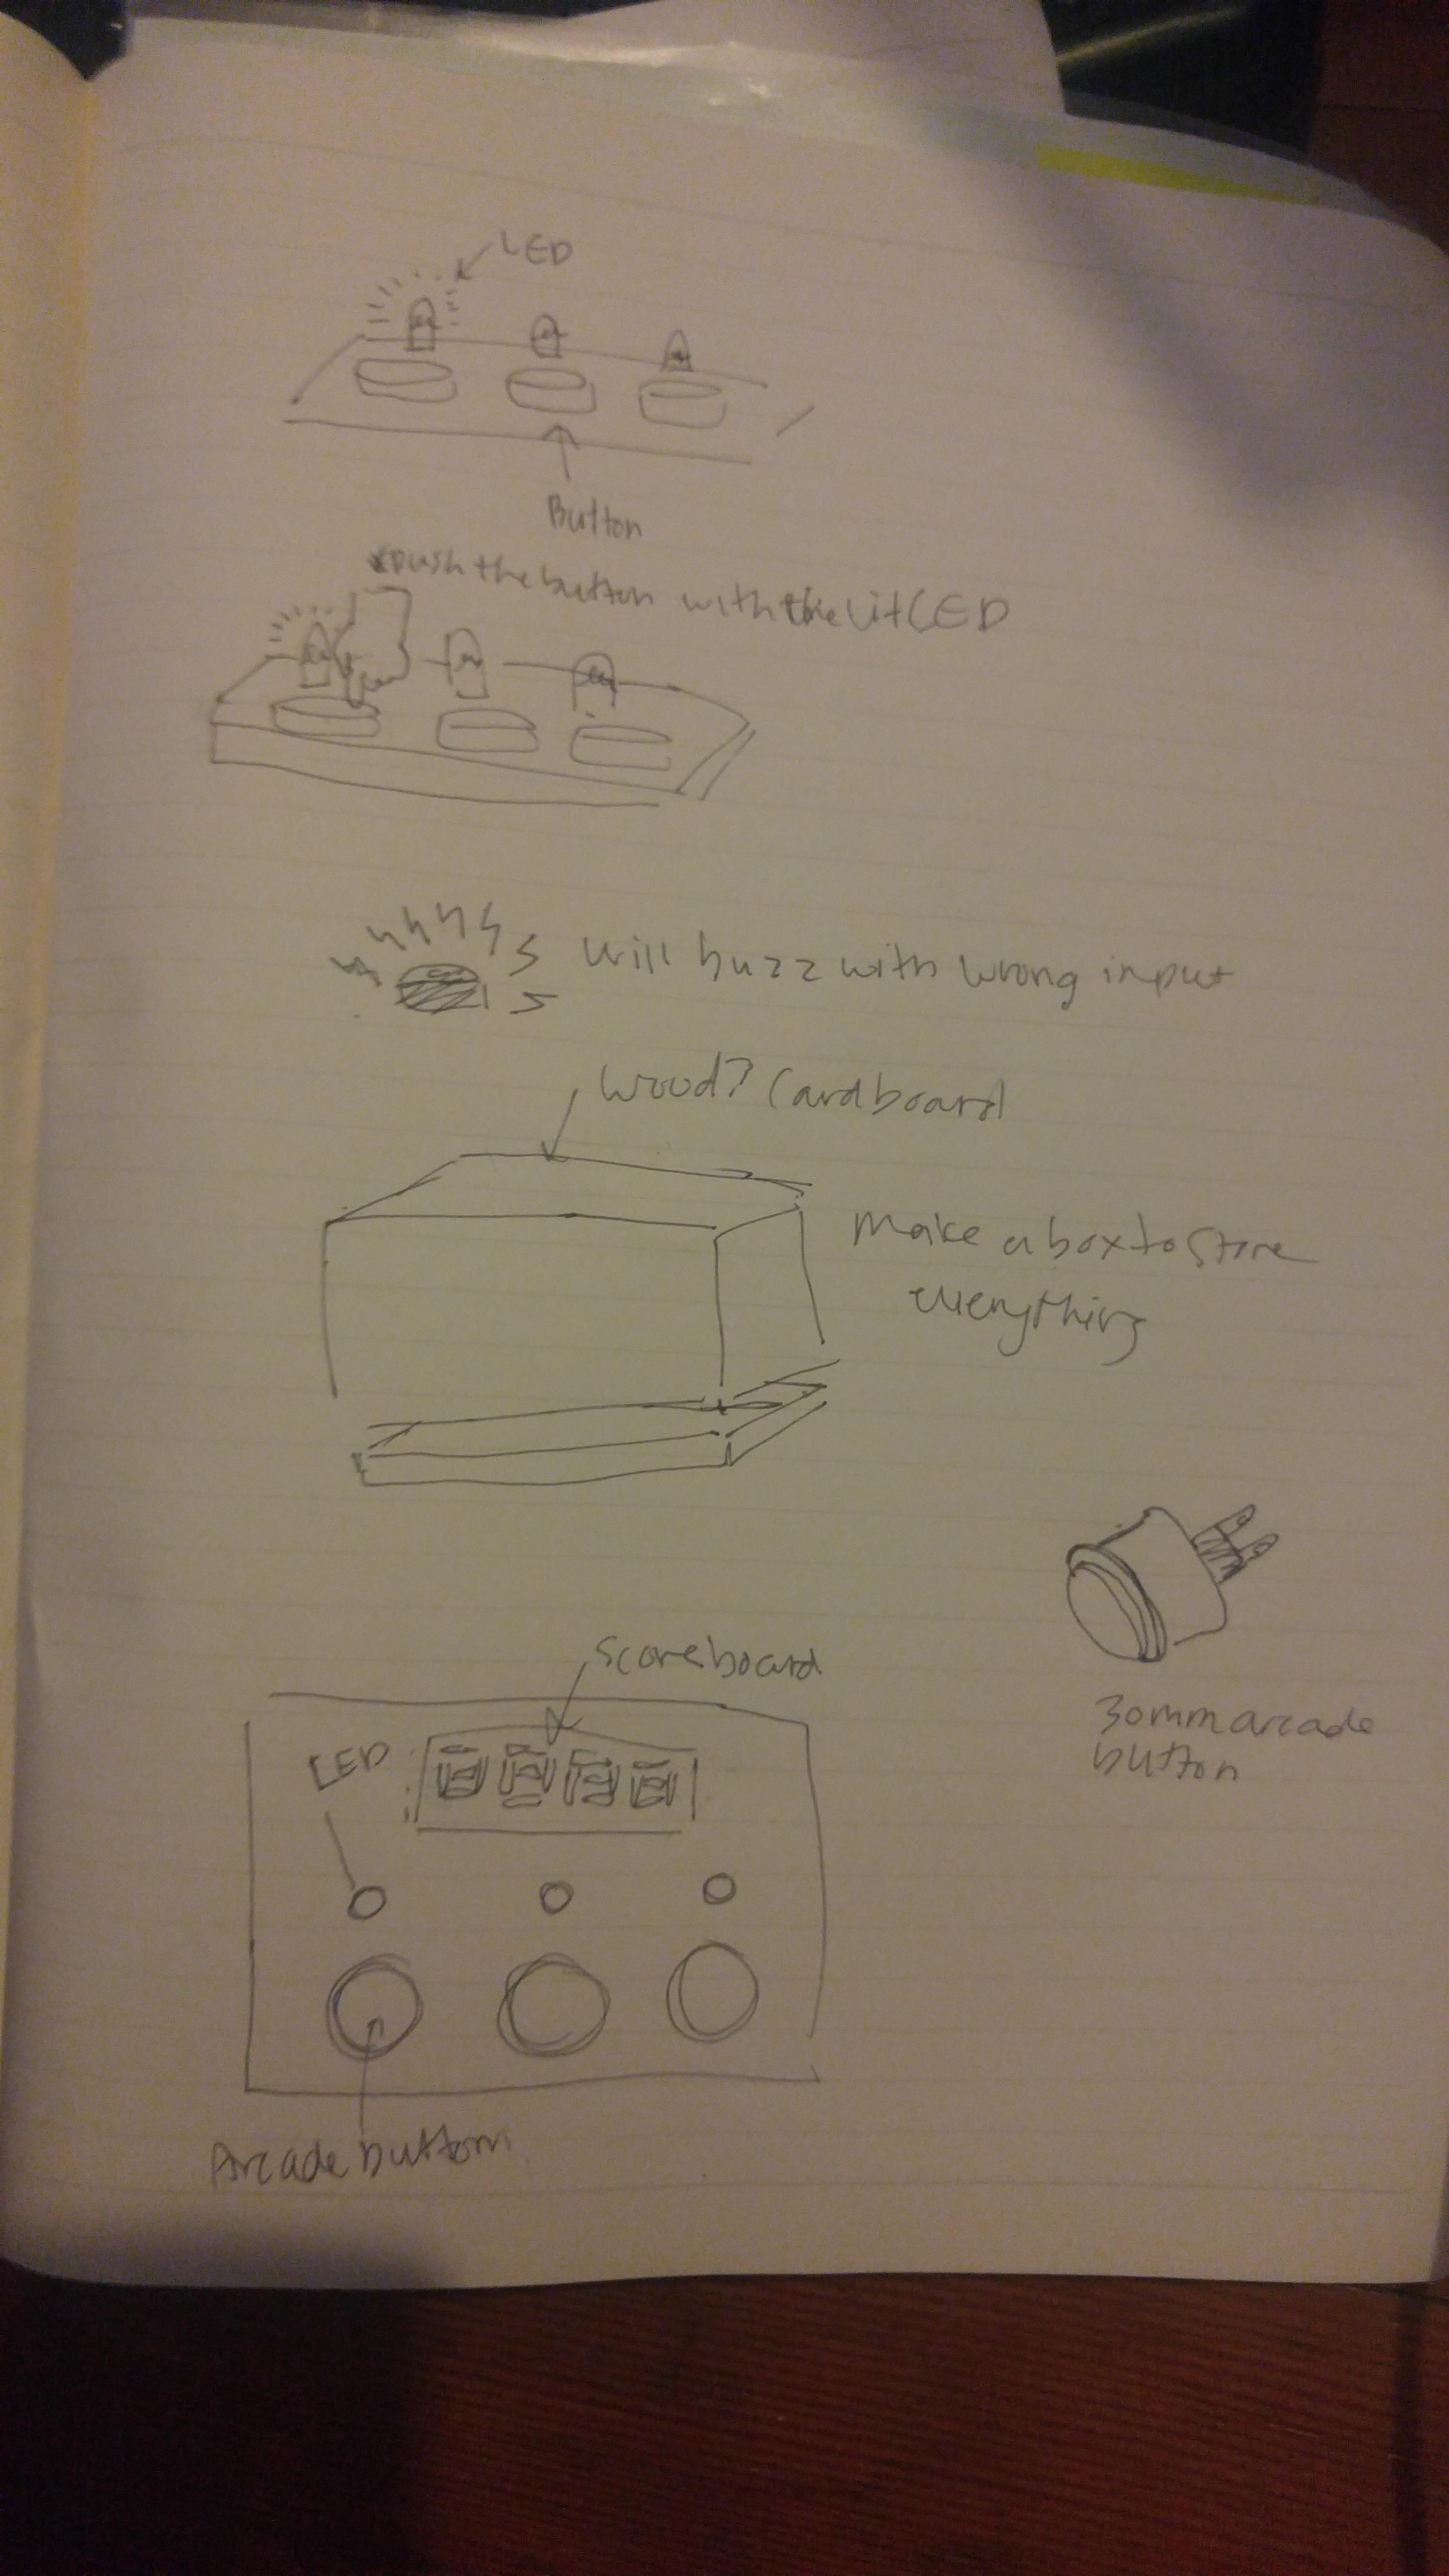 LED
Button
push the button with the lit LED
will buzz with wrong input
Wood? Cardboard
Make a box to store
everything
Scoreboard
LED
30mm arcade
button
Arcade button